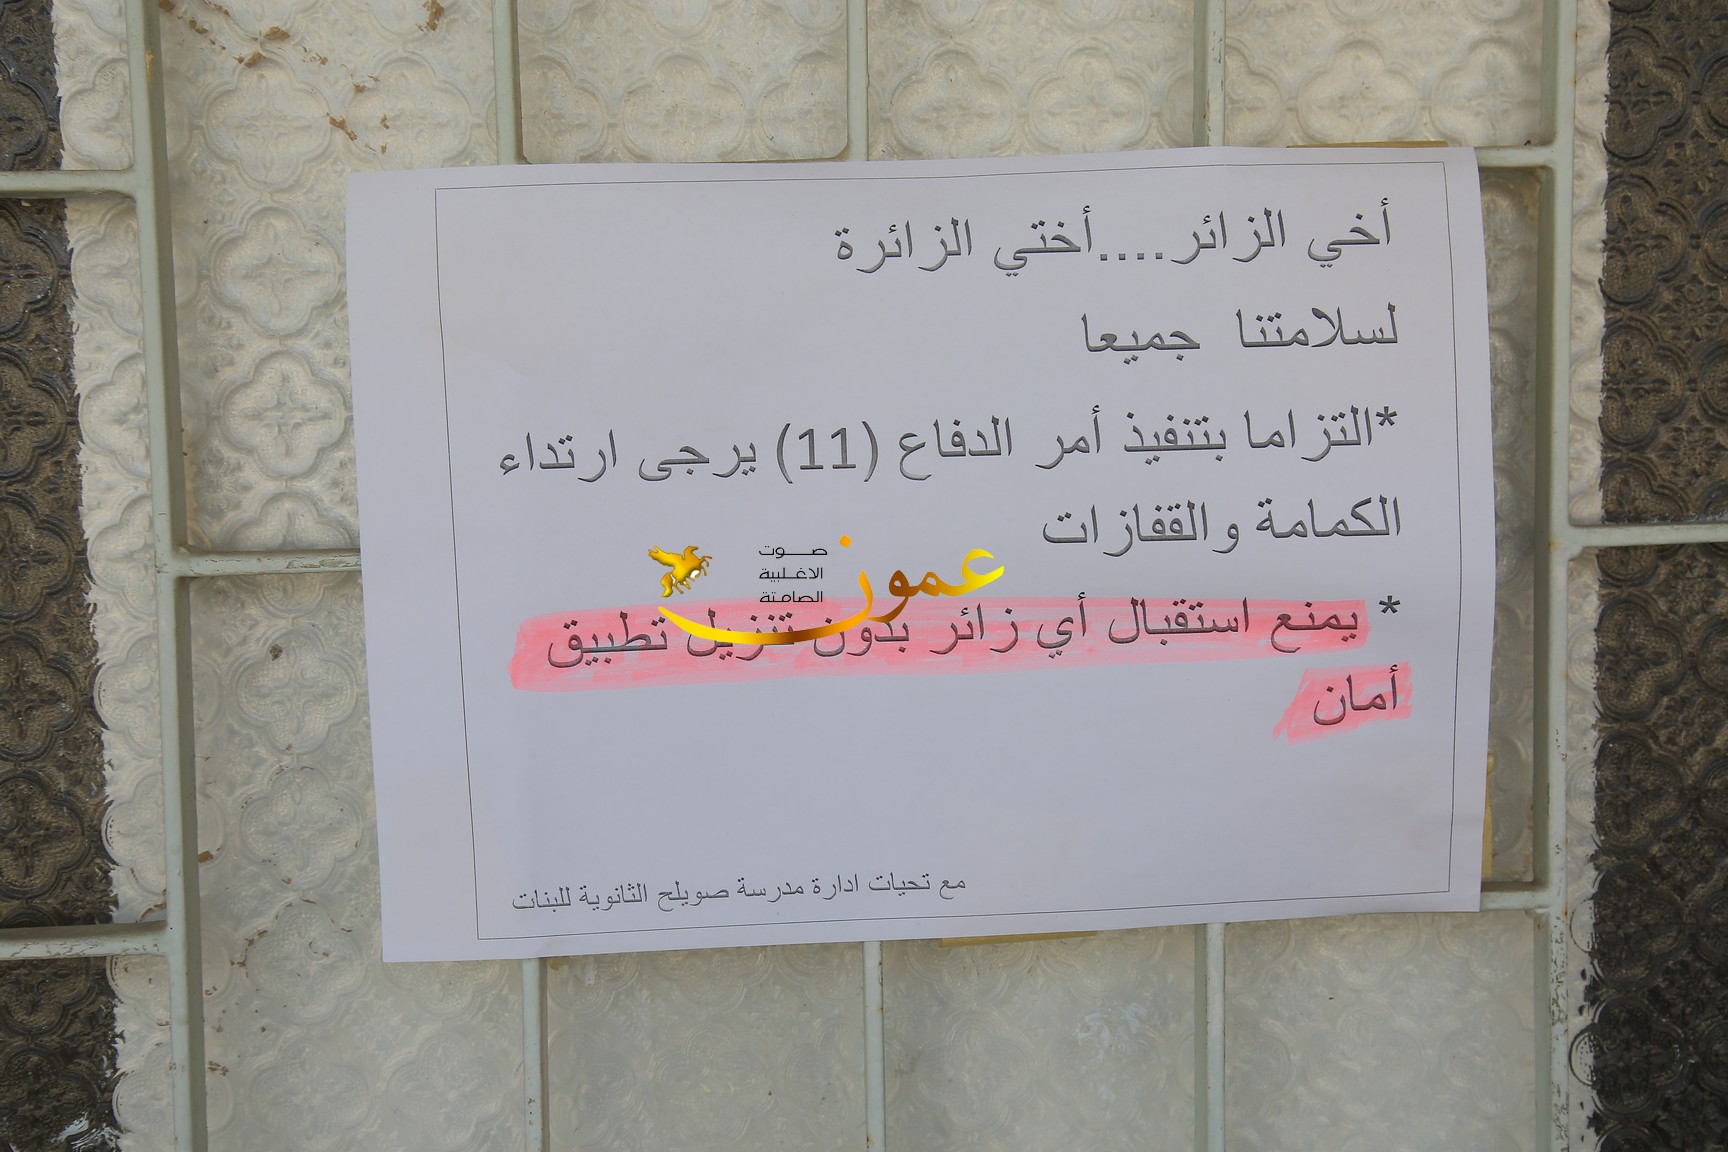 أخي الزائر....أختي الزائرة
لسلامتنا جميعا
*التزاما بتنفيذ أمر الدفاع (11) يرجى ارتداء
الكمامة والقفازات
* يمنع استقبال أي زائر بدون تنزيل تطبيق
أمان
مع تحيات ادارة مدرسة صويلح الثانوية للبنات
عمون
صوت
الاغلبية
الصامتة